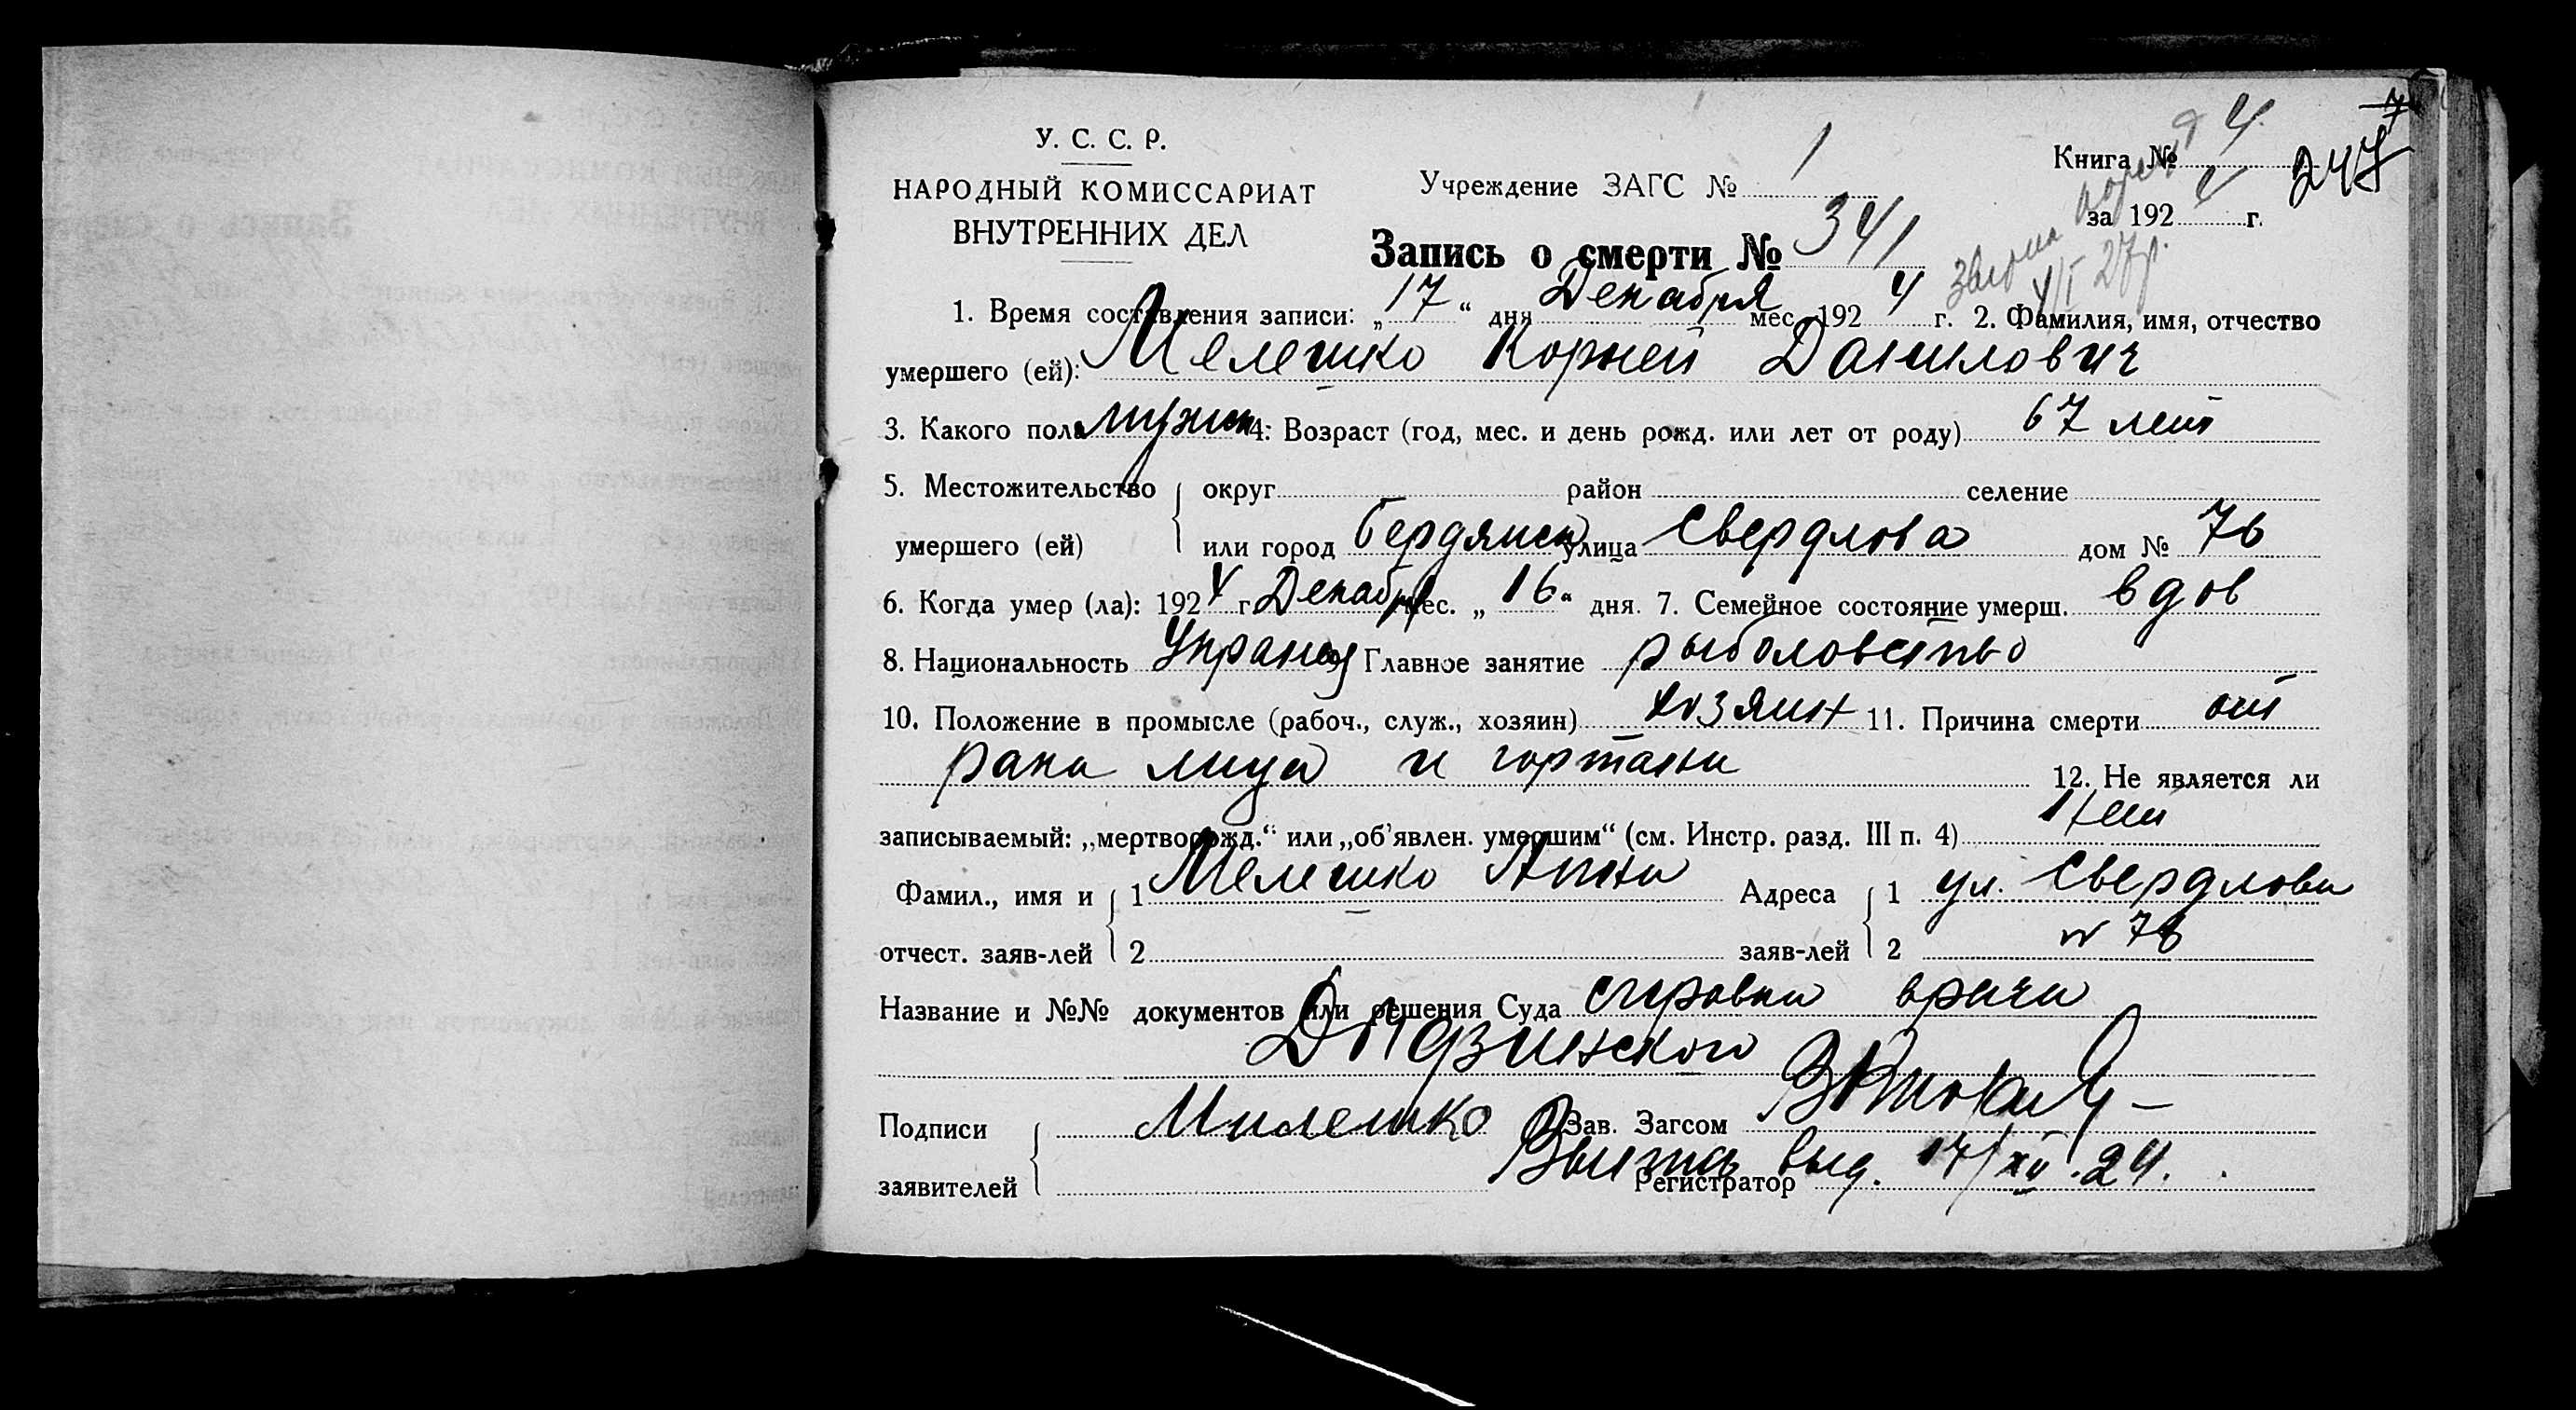 У. С. С. Р.
НАРОДНЫЙ КОМИССАРИАТ
ВНУТРЕННИХ ДЕЛ
Учреждение ЗАГС № 1
Книга № 4
247
за 192 4 г.
Запись о смерти № 341
1. Время составления записи: „ 17 “ дня Декабря мес. 192 4 г. 2. Фамилия, имя, отчество
умершего (ей): Мелешко Корней Данилович
3. Какого пола мужск 4. Возраст (год, мес. и день рожд. или лет от роду) 67 лет
5. Местожительство округ район селение
умершего (ей) или город Бердянск улица Свердлова дом № 76
6. Когда умер (ла): 192 4 г. Декабря мес. „ 16 “ дня. 7. Семейное состояние умерш. вдов
8. Национальность Украинец Главное занятие рыболовство
10. Положение в промысле (рабоч., служ., хозяин) хозяин 11. Причина смерти от
рака лица и гортани 12. Не является ли
записываемый: „мертворожд.“ или „об'явлен. умершим“ (см. Инстр. разд. III п. 4) Нет
Фамил., имя и 1 Мелешко Анна Адреса 1 ул. Свердлова
отчест. заяв-лей 2 заяв-лей 2 № 76
Название и №№ документов или решения Суда справка врача
Подписи Милешко Зав. Загсом
заявителей Регистратор выд. 17/XII 24.